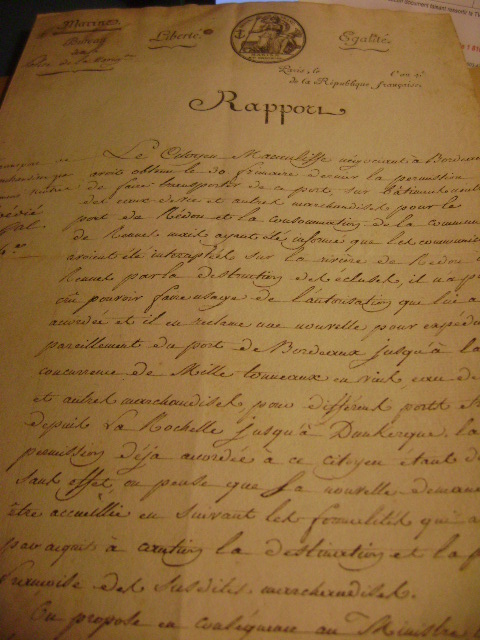 Marine.
Bureau
Liberté.
Egalité.
Paris, le
l'an 4e
de la République française
Rapport
Le Citoyen négociant à Bordeaux
avoit obtenu le 30 frimaire dernier la permission
de faire transporter de ce port, sur bâtiments
des eaux de vie et autres marchandises pour le
port de Redon et la consommation de la commune
de Rennes mais ayant été informé que les
avoient été interceptés sur la rivière de
Rennes par la destruction des écluses, il n'a
pu pouvoir faire usage de l'autorisation que lui a
accordée et il en réclame une nouvelle pour
pareillement du port de Bordeaux jusqu'à la
concurrence de Mille tonneaux en vin, eau de
et autres marchandises pour différents ports
depuis La Rochelle jusqu'à Dunkerque. la
permission déjà accordée à ce citoyen étant
sans effet on pense que la nouvelle
être accueillie en suivant les formalités
par acquit à caution la destination et la
françoise des susdites marchandises.
On propose en conséquence au Ministre